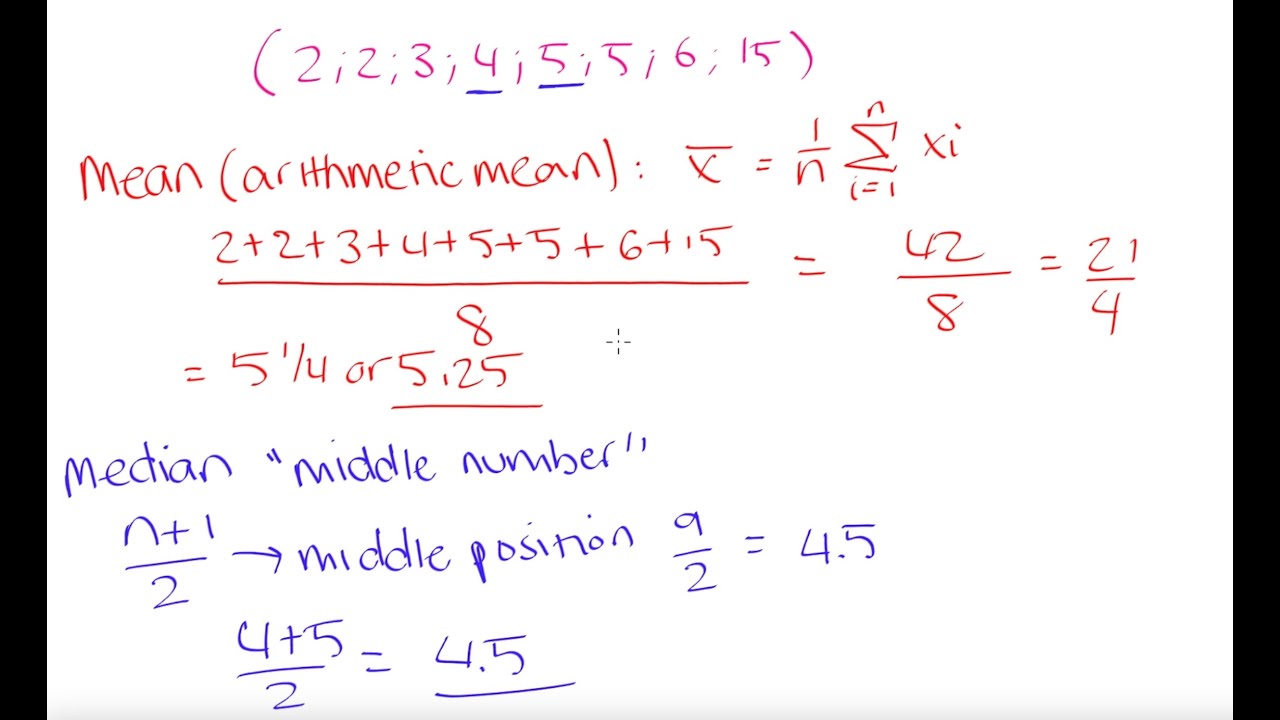 (2;2;3;4;5;5;6;15)
Mean (arithmetic mean): x̄ = 1/n ∑ⁿᵢ₌₁ xi
2+2+3+4+5+5+6+15 / 8 = 42/8 = 21/4
= 5 1/4 or 5,25
Median "middle number"
n+1/2 → middle position 9/2 = 4.5
4+5/2 = 4.5